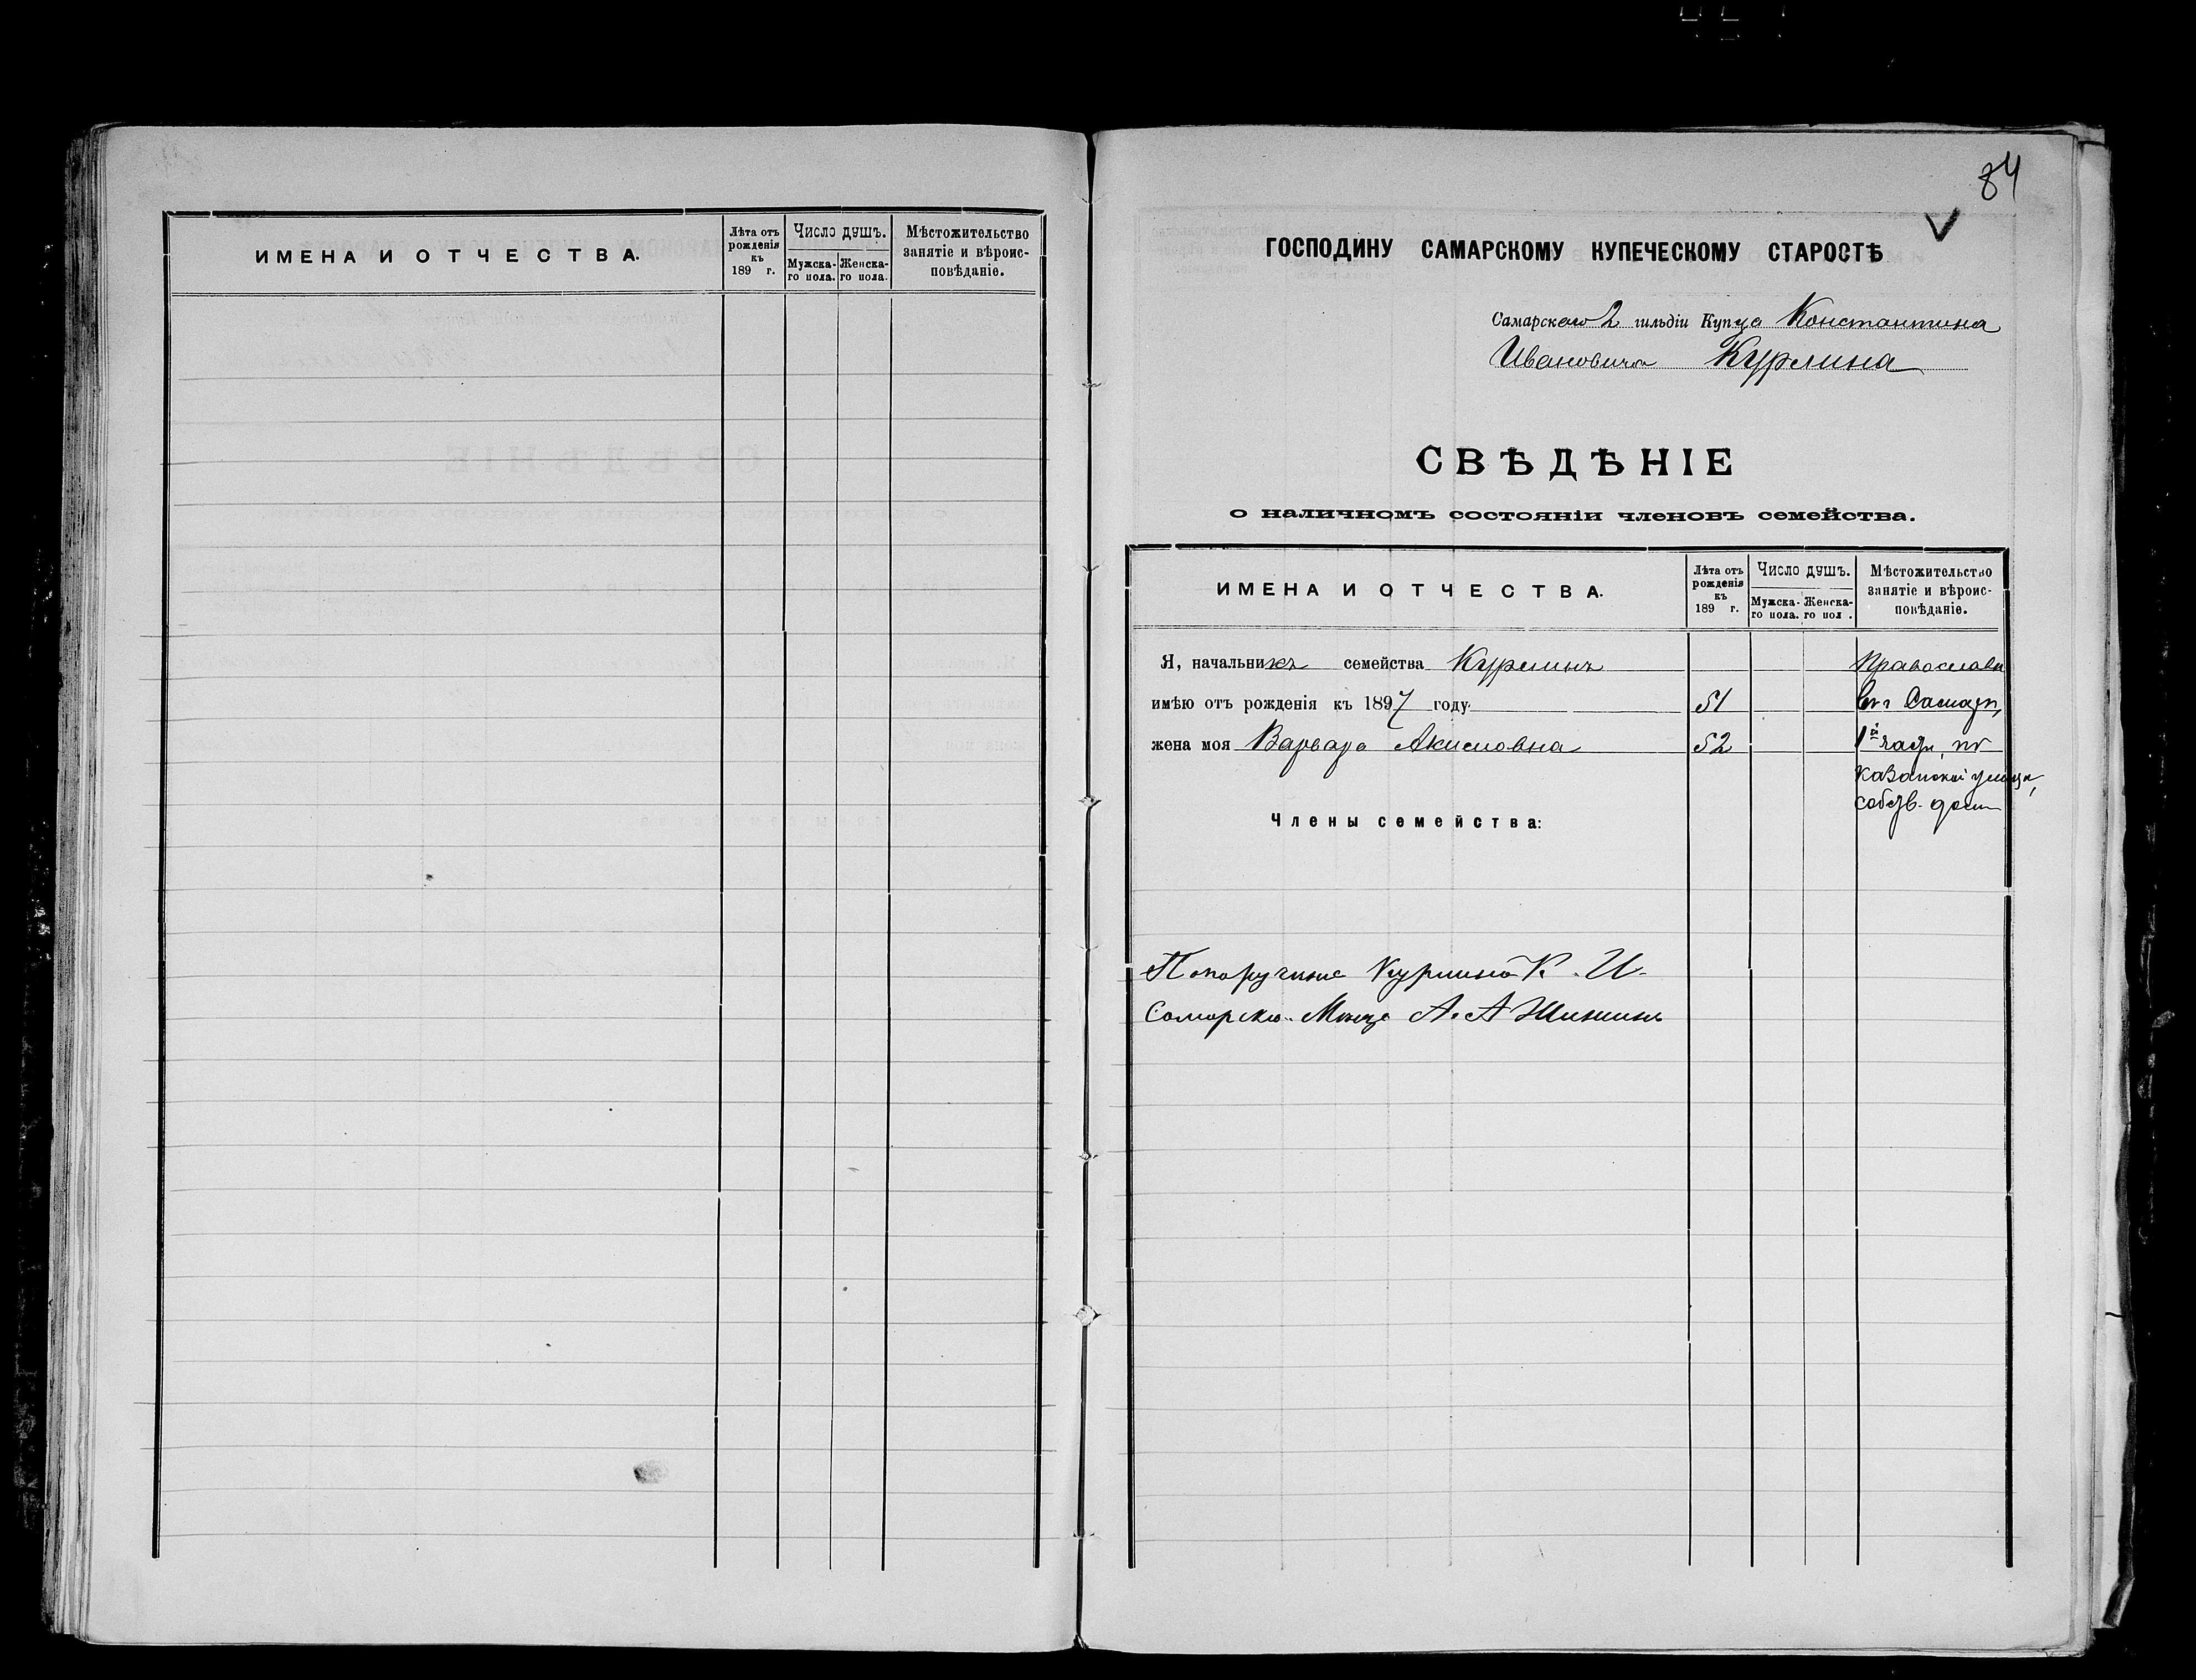 ИМЕНА И ОТЧЕСТВА.
Лѣта отъ рожденія къ 189 г.
Число душъ.
Мужска-го пола.
Женска-го пола.
Мѣстожительство занятіе и вѣроис-повѣданіе.
84
ГОСПОДИНУ САМАРСКОМУ КУПЕЧЕСКОМУ СТАРОСТѢ
Самарскаго 2 гильдіи Купца Константина
Ивановича Курлина
СВѢДѢНІЕ
о наличномъ состояніи членовъ семейства.
ИМЕНА И ОТЧЕСТВА.
Лѣта отъ рожденія къ 189 г.
Число душъ.
Мужска-го пола.
Женска-го пол .
Мѣстожительство занятіе и вѣроис-повѣданіе.
Я, начальникъ семейства Курлинъ Православн
имѣю отъ рожденія къ 1897 году 51 Въ г Самарѣ,
жена моя Варвара Акимовна 52 1й части, по
Казанской улицѣ,
собств. домъ
Члены семейства:
По поручкине Курлина К. И.
Самарск. Мѣща А. А